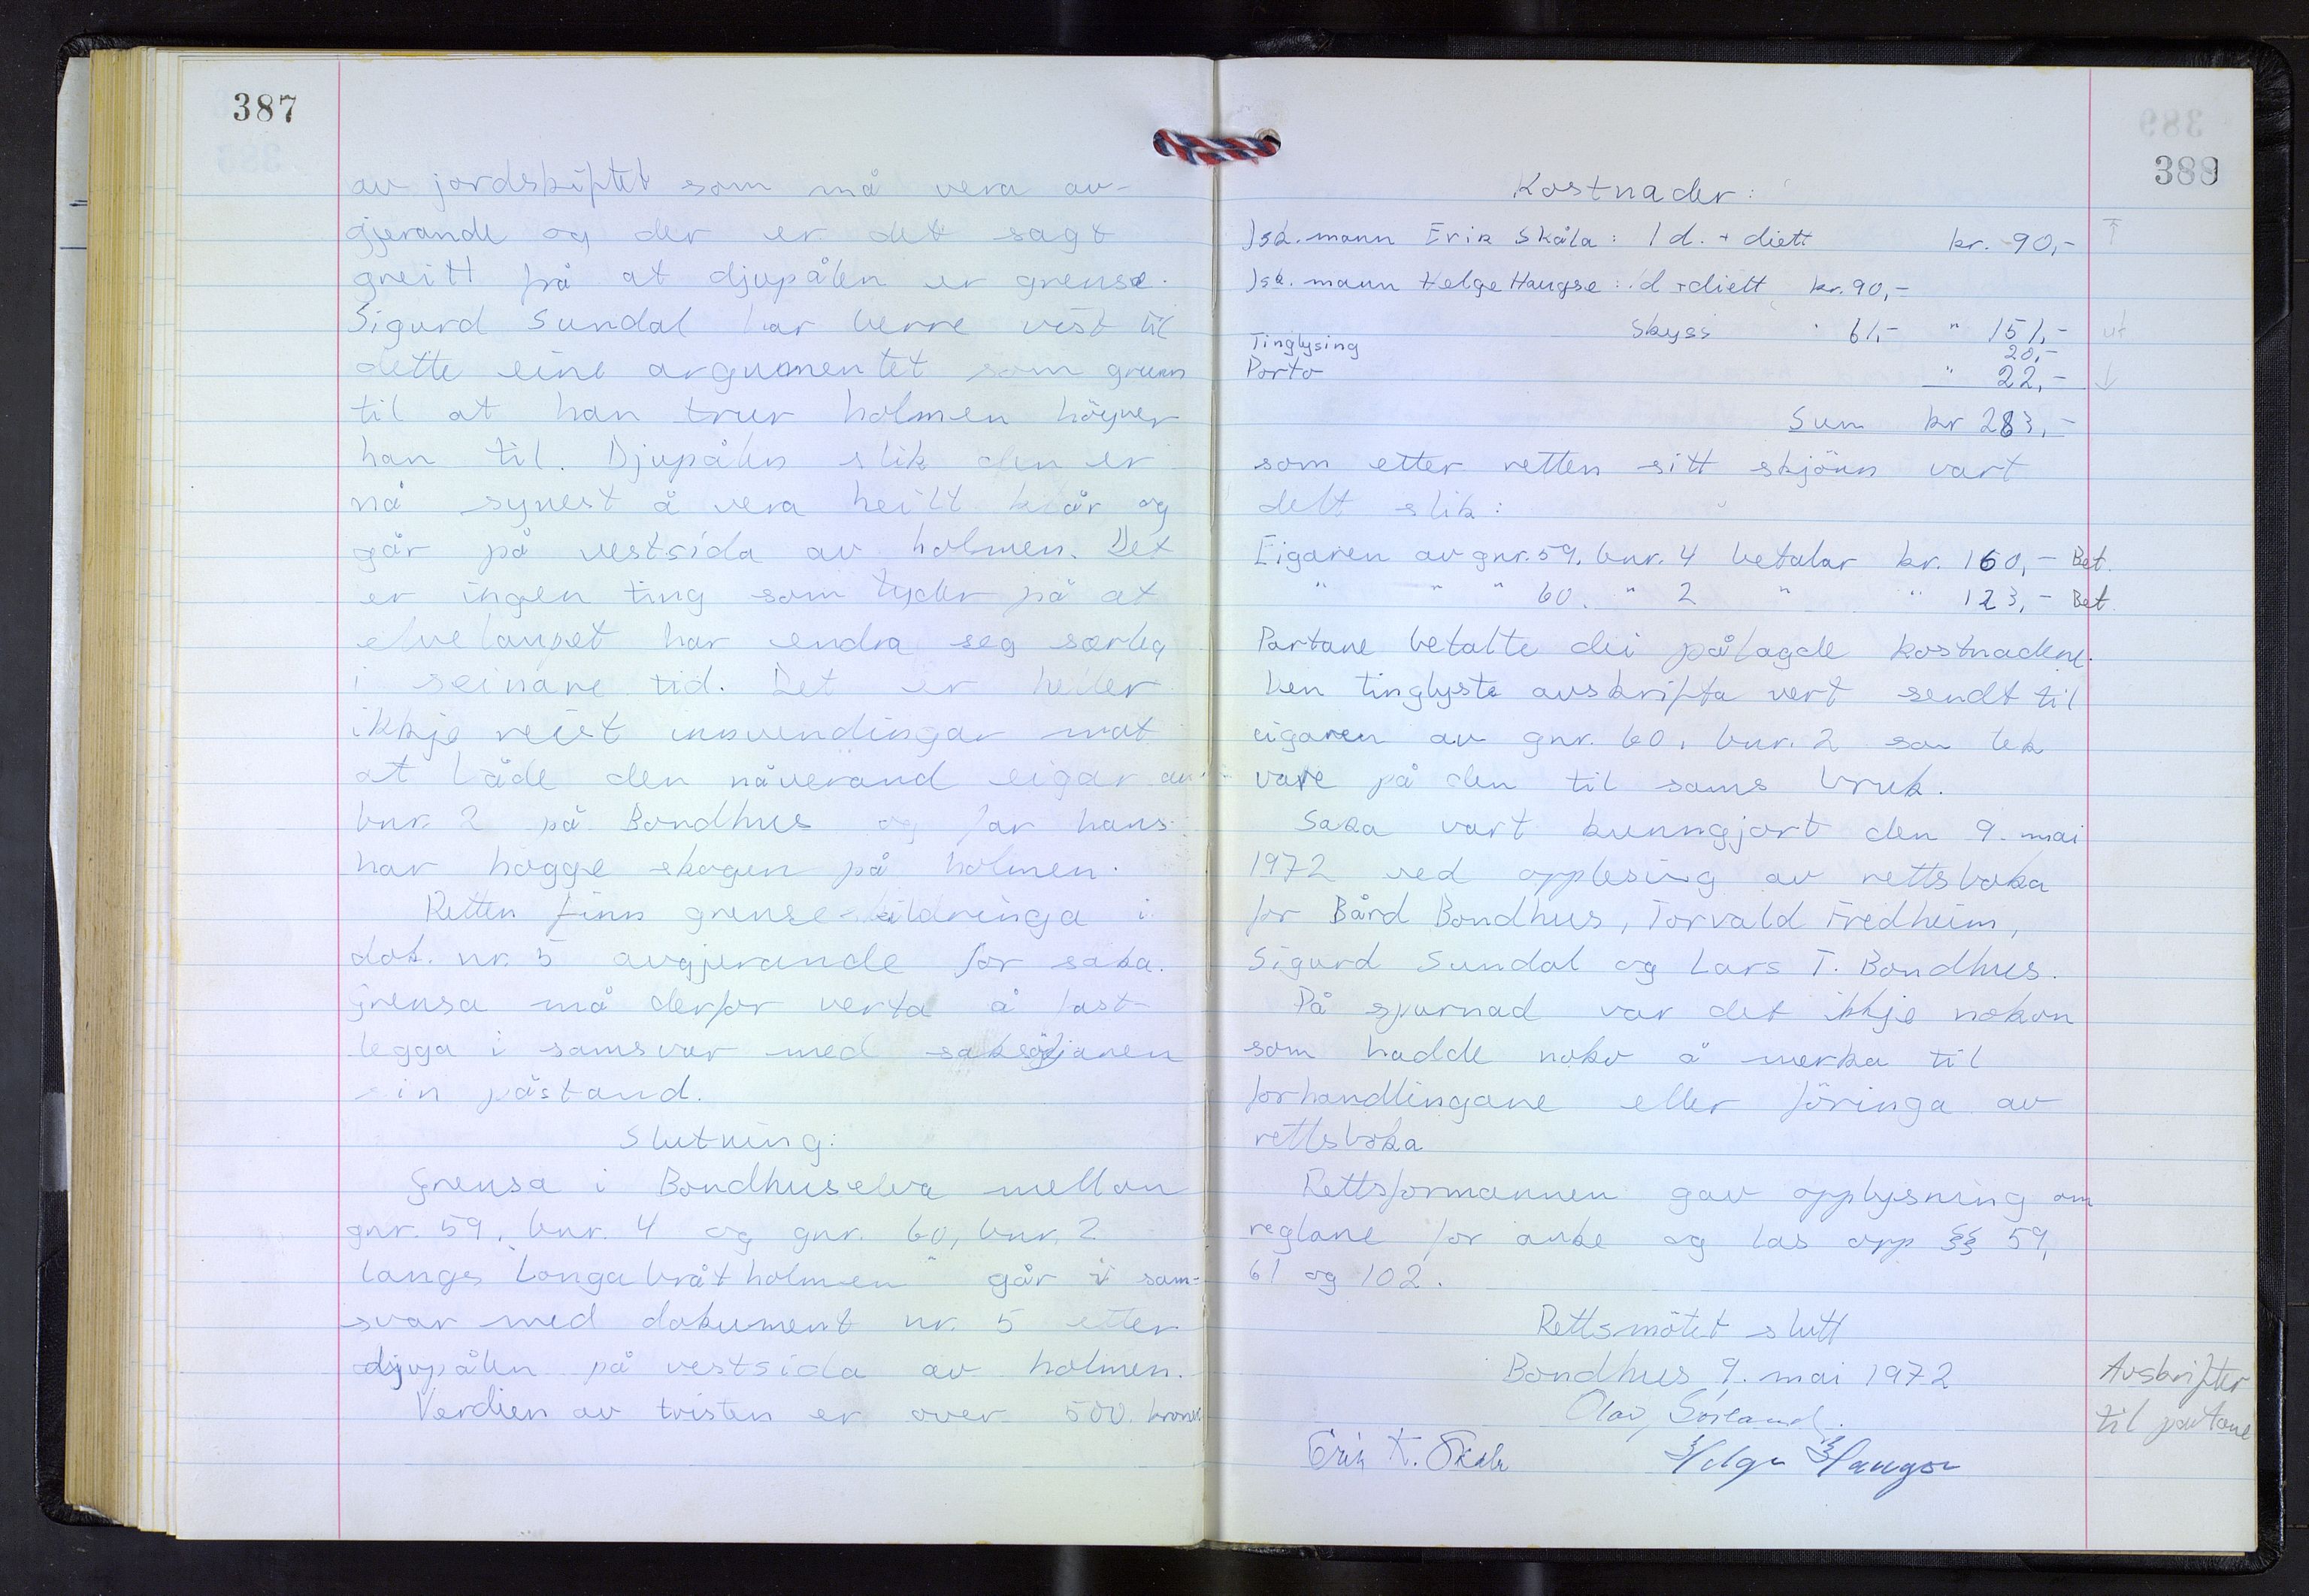 387
av jordskiftet som må vera av-
gjerande og der er det sagt
greitt frå at djupålen er grense.
Sigurd Sundal har berre vist til
dette eine argumentet som grunn
til at han trur holmen höyrer
han til. Djupålen slik den er
nå synest å vera heilt klår og
går på vestsida av holmen. Det
er ingen ting som tyder på at
elvelaupet har endra seg særleg
i seinare tid. Det er heller
ikkje reist innvendingar mot
at både den nåverand eigar av
bnr. 2 på Bondhus og far hans
har hogge skogen på holmen.
Retten finn grense-skildringa i
dok. nr. 5 avgjerande for saka.
Grensa må derfor verta å fast-
legga i samsvar med saksökjaren
sin påstand.
Slutning:
Grensa i Bondhuselva mellom
gnr. 59, bnr. 4 og gnr. 60, bnr. 2
langs "Langabråtholmen" går i sam-
svar med dokument nr. 5 etter
djupålen på vestsida av holmen.
Verdien av tvisten er over 500 kroner.
388
Kostnader:
Jsk.mann Erik Skåla: 1 d. + diett kr. 90,-
Jsk. mann Helge Haugse: 1d + diett kr. 90,-
Skyss " 61,- " 151,- ut
Tinglysing 20,-
Porto " 22,-
Sum kr 283,-
som etter retten sitt skjönn vart
delt slik:
Eigaren av gnr. 59, bnr. 4 betalar kr. 160,- Bet.
" " " 60. " 2 " " 123,- Bet.
Partane betalte dei pålagde kostnadene.
Den tinglyste avskrifta vert sendt til
eigaren av gnr. 60, bnr. 2 som tek
vare på den til sams bruk.
Saka vart kunngjort den 9. mai
1972 ved opplesing av rettsboka
for Bård Bondhus, Torvald Fredheim,
Sigurd Sundal og Lars T. Bondhus.
På spurnad var det ikkje nokon
som hadde noko å merka til
forhandlingane eller föringa av
rettsboka
Rettsformannen gav opplysning om
reglane for anke og las opp §§ 59,
61 og 102.
Rettsmötet slutt
Bondhus 9. mai 1972
Olav Sörland.
Erik K. Skåla Helge Haugse
Avskrifter
til partane